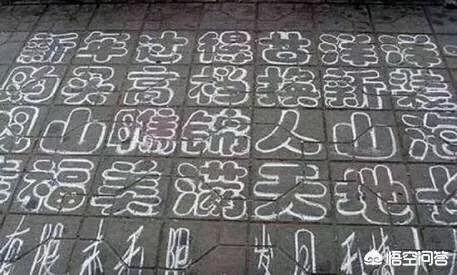 新年过得喜洋洋
购买高档换新装
观山瞧锦人山海
幸福美满天地
有限
悟空问答